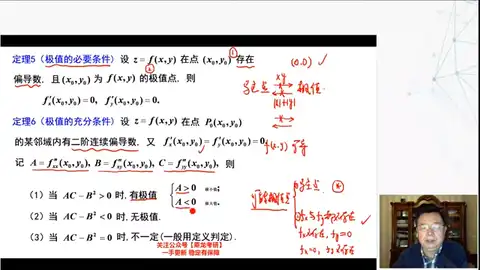 定理5（极值的必要条件）设 z = f(x,y) 在点 (x₀,y₀) 存在
偏导数，且 (x₀,y₀) 为 f(x,y) 的极值点，则
f′ₓ(x₀,y₀)=0, f′ᵧ(x₀,y₀)=0.
定理6（极值的充分条件）设 z = f(x,y) 在点 P₀(x₀,y₀)
的某邻域内有二阶连续偏导数，又 f′ₓ(x₀,y₀)=f′ᵧ(x₀,y₀)=0
记 A = f″ₓₓ(x₀,y₀), B = f″ₓᵧ(x₀,y₀), C = f″ᵧᵧ(x₀,y₀), 则
（1）当 AC − B² > 0 时, 有极值 A > 0 极小值；
A < 0 极大值.
（2）当 AC − B² < 0 时, 无极值.
（3）当 AC − B² = 0 时, 不一定(一般用定义判定).
关注公众号【乘龙考研】
一手更新 稳定有保障
(0,0)
xy
驻点 极值
|x|+|y|
f(x,y)
驻点